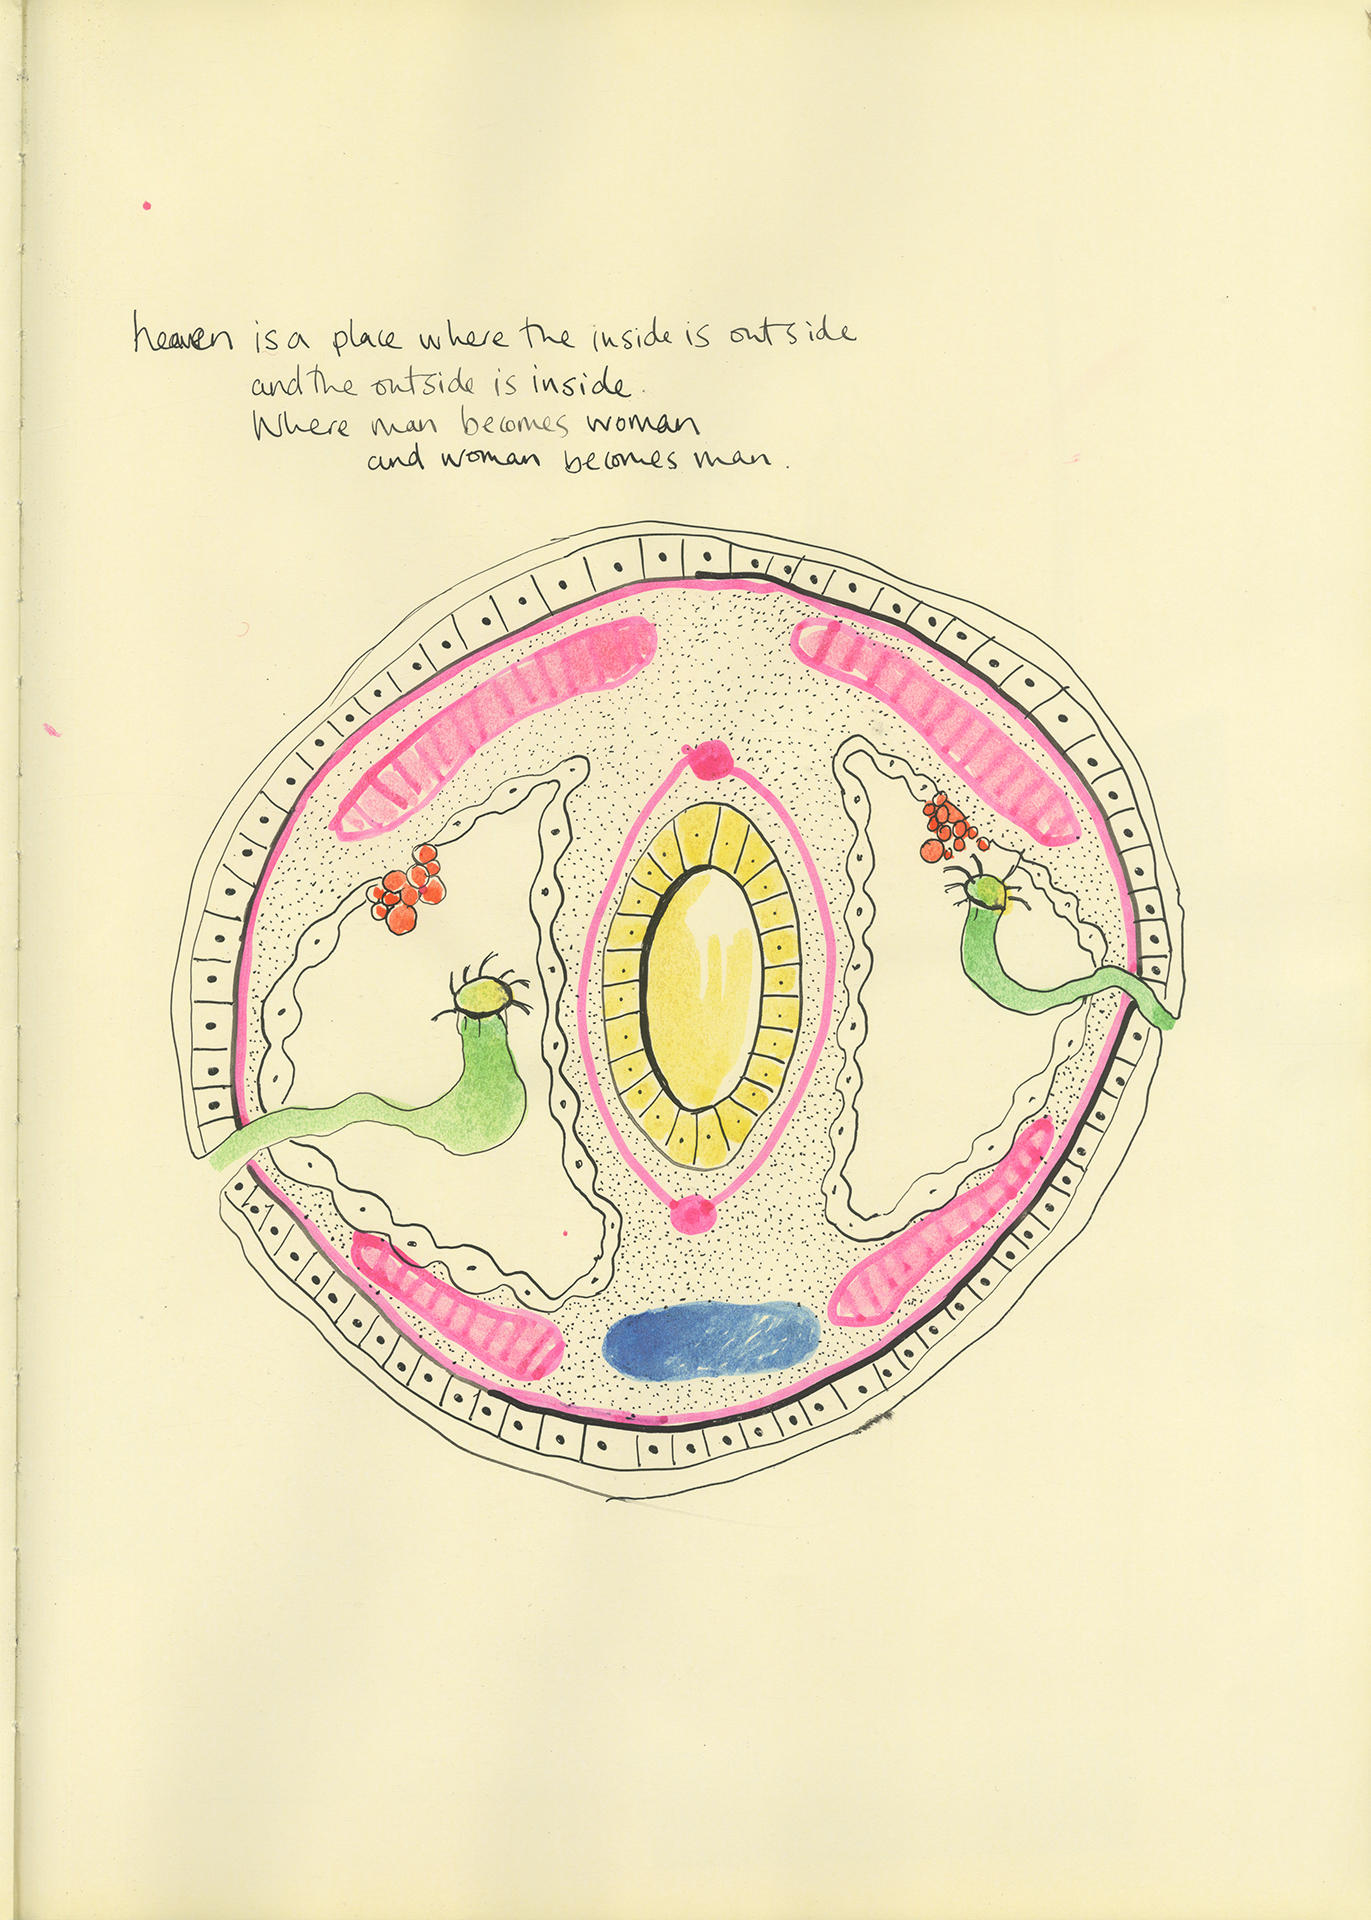 heaven is a place where the inside is outside
and the outside is inside.
Where man becomes woman
and woman becomes man.